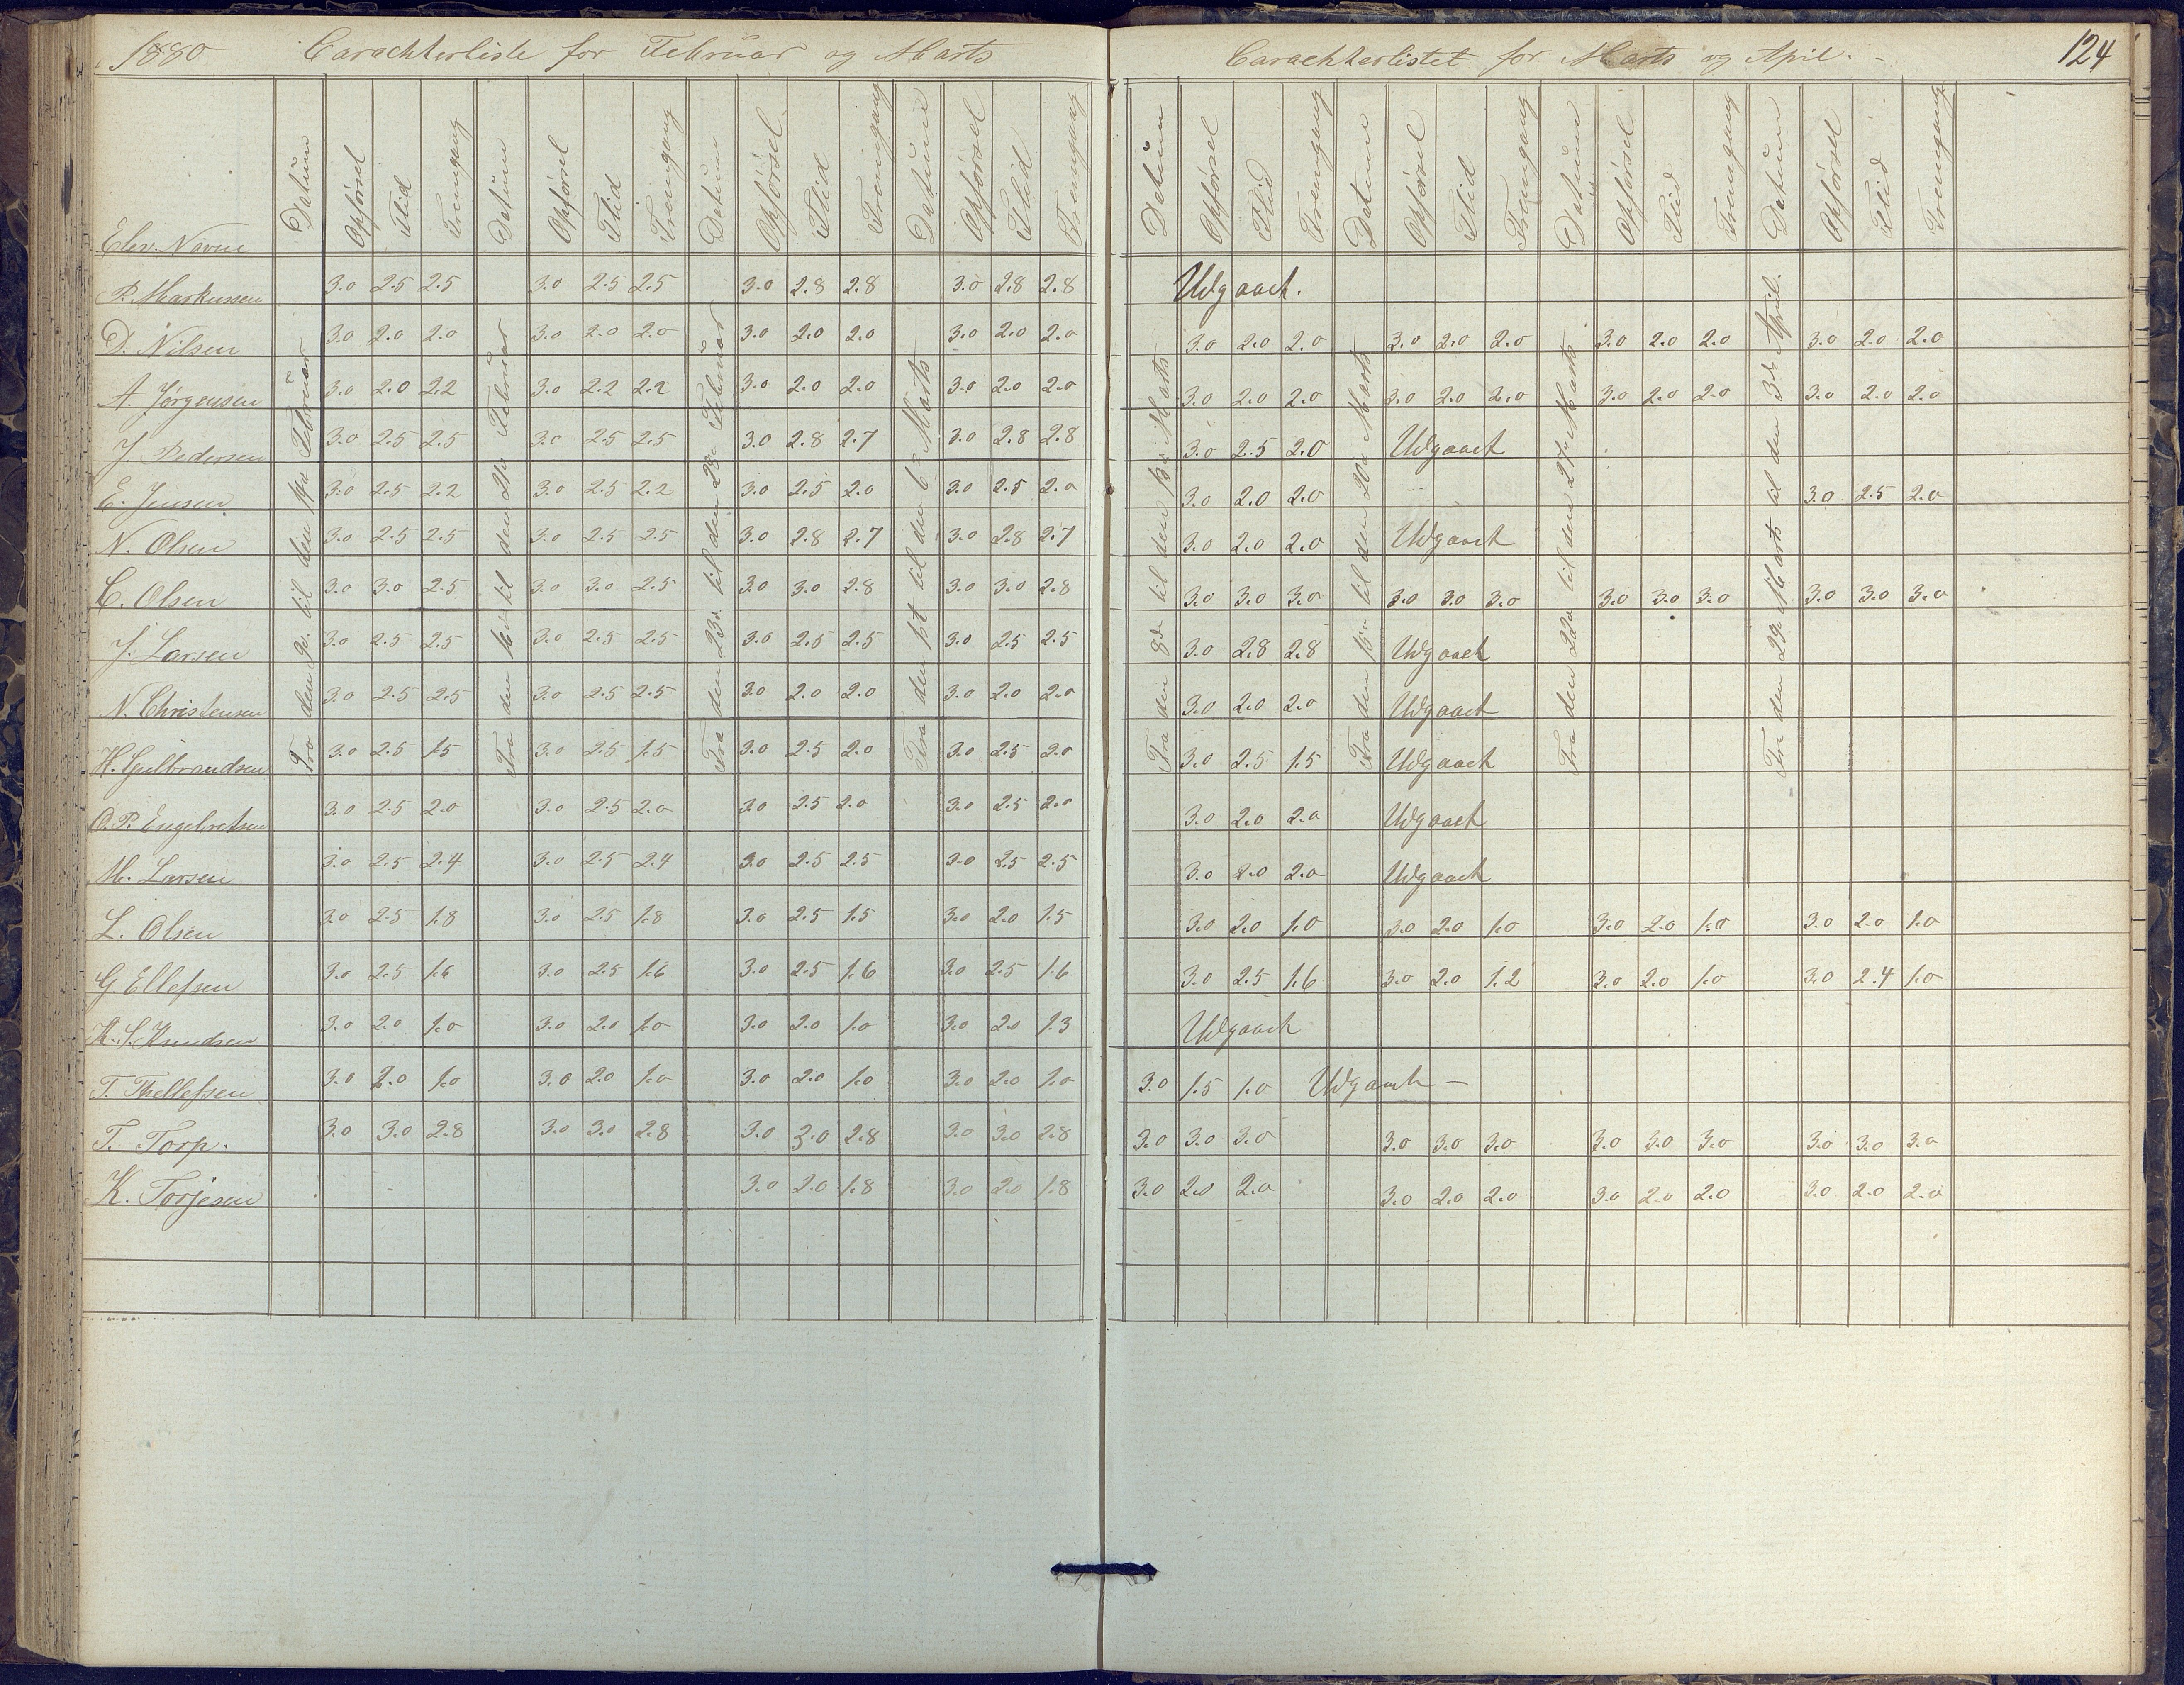 1880 Carachterliste for Februar og Marts
Elev. Navne Datum Opførsel Flid Fremgang Datum Opførsel Flid Fremgang Datum Opførsel Flid Fremgang Datum Opførsel Flid Fremgang
Fra den 9de til den 14de Februar
Fra den 16de til den 21de Februar
Fra den 23de til den 28de Februar
Fra den 1st til den 6te Marts
P. Markussen 3.0 2.5 2.5 3.0 2.5 2.5 3.0 2.8 2.8 3.0 2.8 2.8
D. Nilsen 3.0 2.0 2.0 3.0 2.0 2.0 3.0 2.0 2.0 3.0 2.0 2.0
A. Jørgensen 3.0 2.0 2.2 3.0 2.2 2.2 3.0 2.0 2.0 3.0 2.0 2.0
J. Pedersen 3.0 2.5 2.5 3.0 2.5 2.5 3.0 2.8 2.7 3.0 2.8 2.8
E. Jensen 3.0 2.5 2.2 3.0 2.5 2.2 3.0 2.5 2.0 3.0 2.5 2.0
N. Olsen 3.0 2.5 2.5 3.0 2.5 2.5 3.0 2.8 2.7 3.0 2.8 2.7
C. Olsen 3.0 3.0 2.5 3.0 3.0 2.5 3.0 3.0 2.8 3.0 3.0 2.8
J. Larsen 3.0 2.5 2.5 3.0 2.5 2.5 3.0 2.5 2.5 3.0 2.5 2.5
N. Christensen 3.0 2.5 2.5 3.0 2.5 2.5 3.0 2.0 2.0 3.0 2.0 2.0
H. Gulbrandsen 3.0 2.5 1.5 3.0 2.5 1.5 3.0 2.5 2.0 3.0 2.5 2.0
O. P. Engebretsen 3.0 2.5 2.0 3.0 2.5 2.0 3.0 2.5 2.0 3.0 2.5 2.0
M. Larsen 3.0 2.5 2.4 3.0 2.5 2.4 3.0 2.5 2.5 3.0 2.5 2.5
L. Olsen 3.0 2.5 1.8 3.0 2.5 1.8 3.0 2.5 1.5 3.0 2.0 1.5
G. Ellefsen 3.0 2.5 1.6 3.0 2.5 1.6 3.0 2.5 1.6 3.0 2.5 1.6
K. S. Knudsen 3.0 2.0 1.0 3.0 2.0 1.0 3.0 2.0 1.0 3.0 2.0 1.3
T. Thellefsen 3.0 2.0 1.0 3.0 2.0 1.0 3.0 2.0 1.0 3.0 2.0 1.0
T. Torp. 3.0 3.0 2.8 3.0 3.0 2.8 3.0 3.0 2.8 3.0 3.0 2.8
K. Torjesen 3.0 2.0 1.8 3.0 2.0 1.8
Carachterlistet for Marts og April. - 124
Datum Opførsel Flid Fremgang Datum Opførsel Flid Fremgang Datum Opførsel Flid Fremgang Datum Opførsel Flid Fremgang
Fra den 8de til den 13de Marts
Fra den 15de til den 20de Marts
Fra den 22de til den 27de Marts
Fra den 29de Marts til den 3de April.
Udgaaet.
3.0 2.0 2.0 3.0 2.0 2.0 3.0 2.0 2.0 3.0 2.0 2.0
3.0 2.0 2.0 3.0 2.0 2.0 3.0 2.0 2.0 3.0 2.0 2.0
3.0 2.5 2.0 Udgaaet
3.0 2.0 2.0 3.0 2.5 2.0
3.0 2.0 2.0 Udgaaet
3.0 3.0 3.0 3.0 3.0 3.0 3.0 3.0 3.0 3.0 3.0 3.0
3.0 2.8 2.8 Udgaaet
3.0 2.0 2.0 Udgaaet
3.0 2.5 1.5 Udgaaet
3.0 2.0 2.0 Udgaaet
3.0 2.0 2.0 Udgaaet
3.0 2.0 1.0 3.0 2.0 1.0 3.0 2.0 1.0 3.0 2.0 1.0
3.0 2.5 1.6 3.0 2.0 1.2 3.0 2.0 1.0 3.0 2.4 1.0
Udgaaet
3.0 1.5 1.0 Udgaaet —
3.0 3.0 3.0 3.0 3.0 3.0 3.0 3.0 3.0 3.0 3.0 3.0
3.0 2.0 2.0 3.0 2.0 2.0 3.0 2.0 2.0 3.0 2.0 2.0